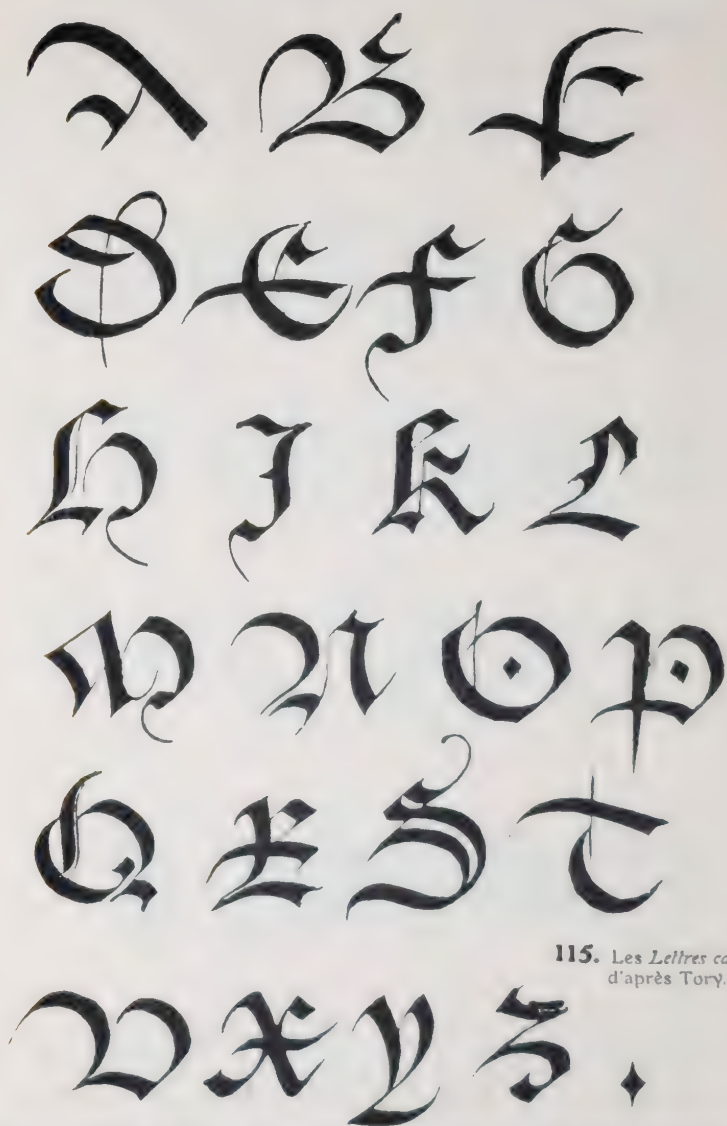 A B C
D E F G
H I K L
M N O P
Q R S T
115. Les Lettres
d'après Tory.
V X Y Z